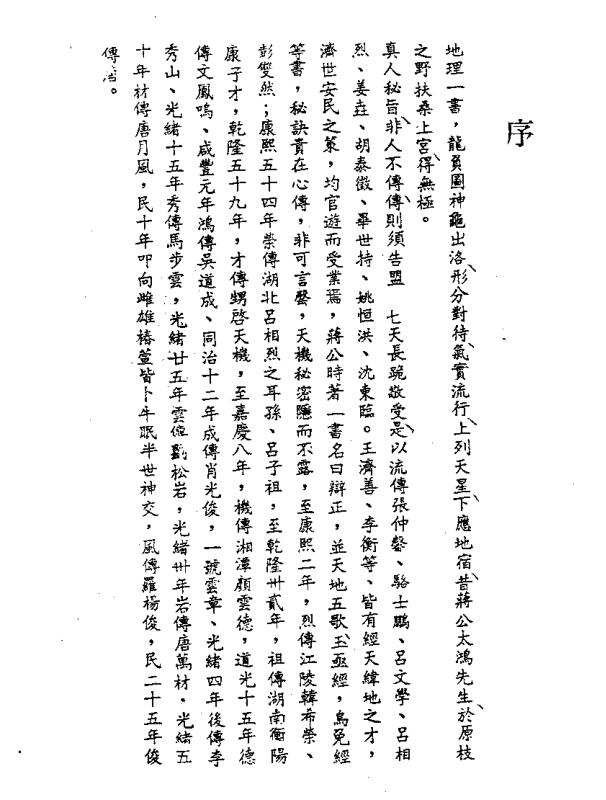 序
地理一書，龍負圖神龜出洛、形分對待、氣實流行、上列天星、下應地宿、昔蔣公太鴻先生、於原枝
之野扶桑上宮、得無極。
真人秘旨、非人不傳、傳則須告盟　七天長跪敬受、是以流傳張仲馨、駱士鵬、呂文學、呂相
烈、姜垚、胡泰徵、畢世持、姚恒洪、沈東臨。王濟善、李衡等、皆有經天緯地之才，
濟世安民之策，均官遊而受業焉，蔣公時著一書名曰辯正，並天地五歌、玉函經，烏兔經
等書，秘訣貴在心傳，非可言罄，天機秘密隱而不露，至康熙二年，烈傳江陵韓希榮、
彭雙然；康熙五十四年榮傳湖北呂相烈之耳孫、呂子祖，至乾隆卅貳年，祖傳湖南衡陽
康子才，乾隆五十九年，才傳甥啓天機，至嘉慶八年，機傳湘潭顏雲德，道光十五年德
傳文鳳鳴、咸豐元年鴻傳吳道成、同治十二年成傳肖光俊，一號雲章、光緒四年後傳李
秀山、光緒十五年秀傳馬步雲，光緒廿五年雲傳劉松岩，光緒卅年岩傳唐萬材。光緒五
十年材傳唐月風，民十年叩向雌雄椿萱皆卜牛眠半世神交，風傳羅楊俊，民二十五年俊
傳